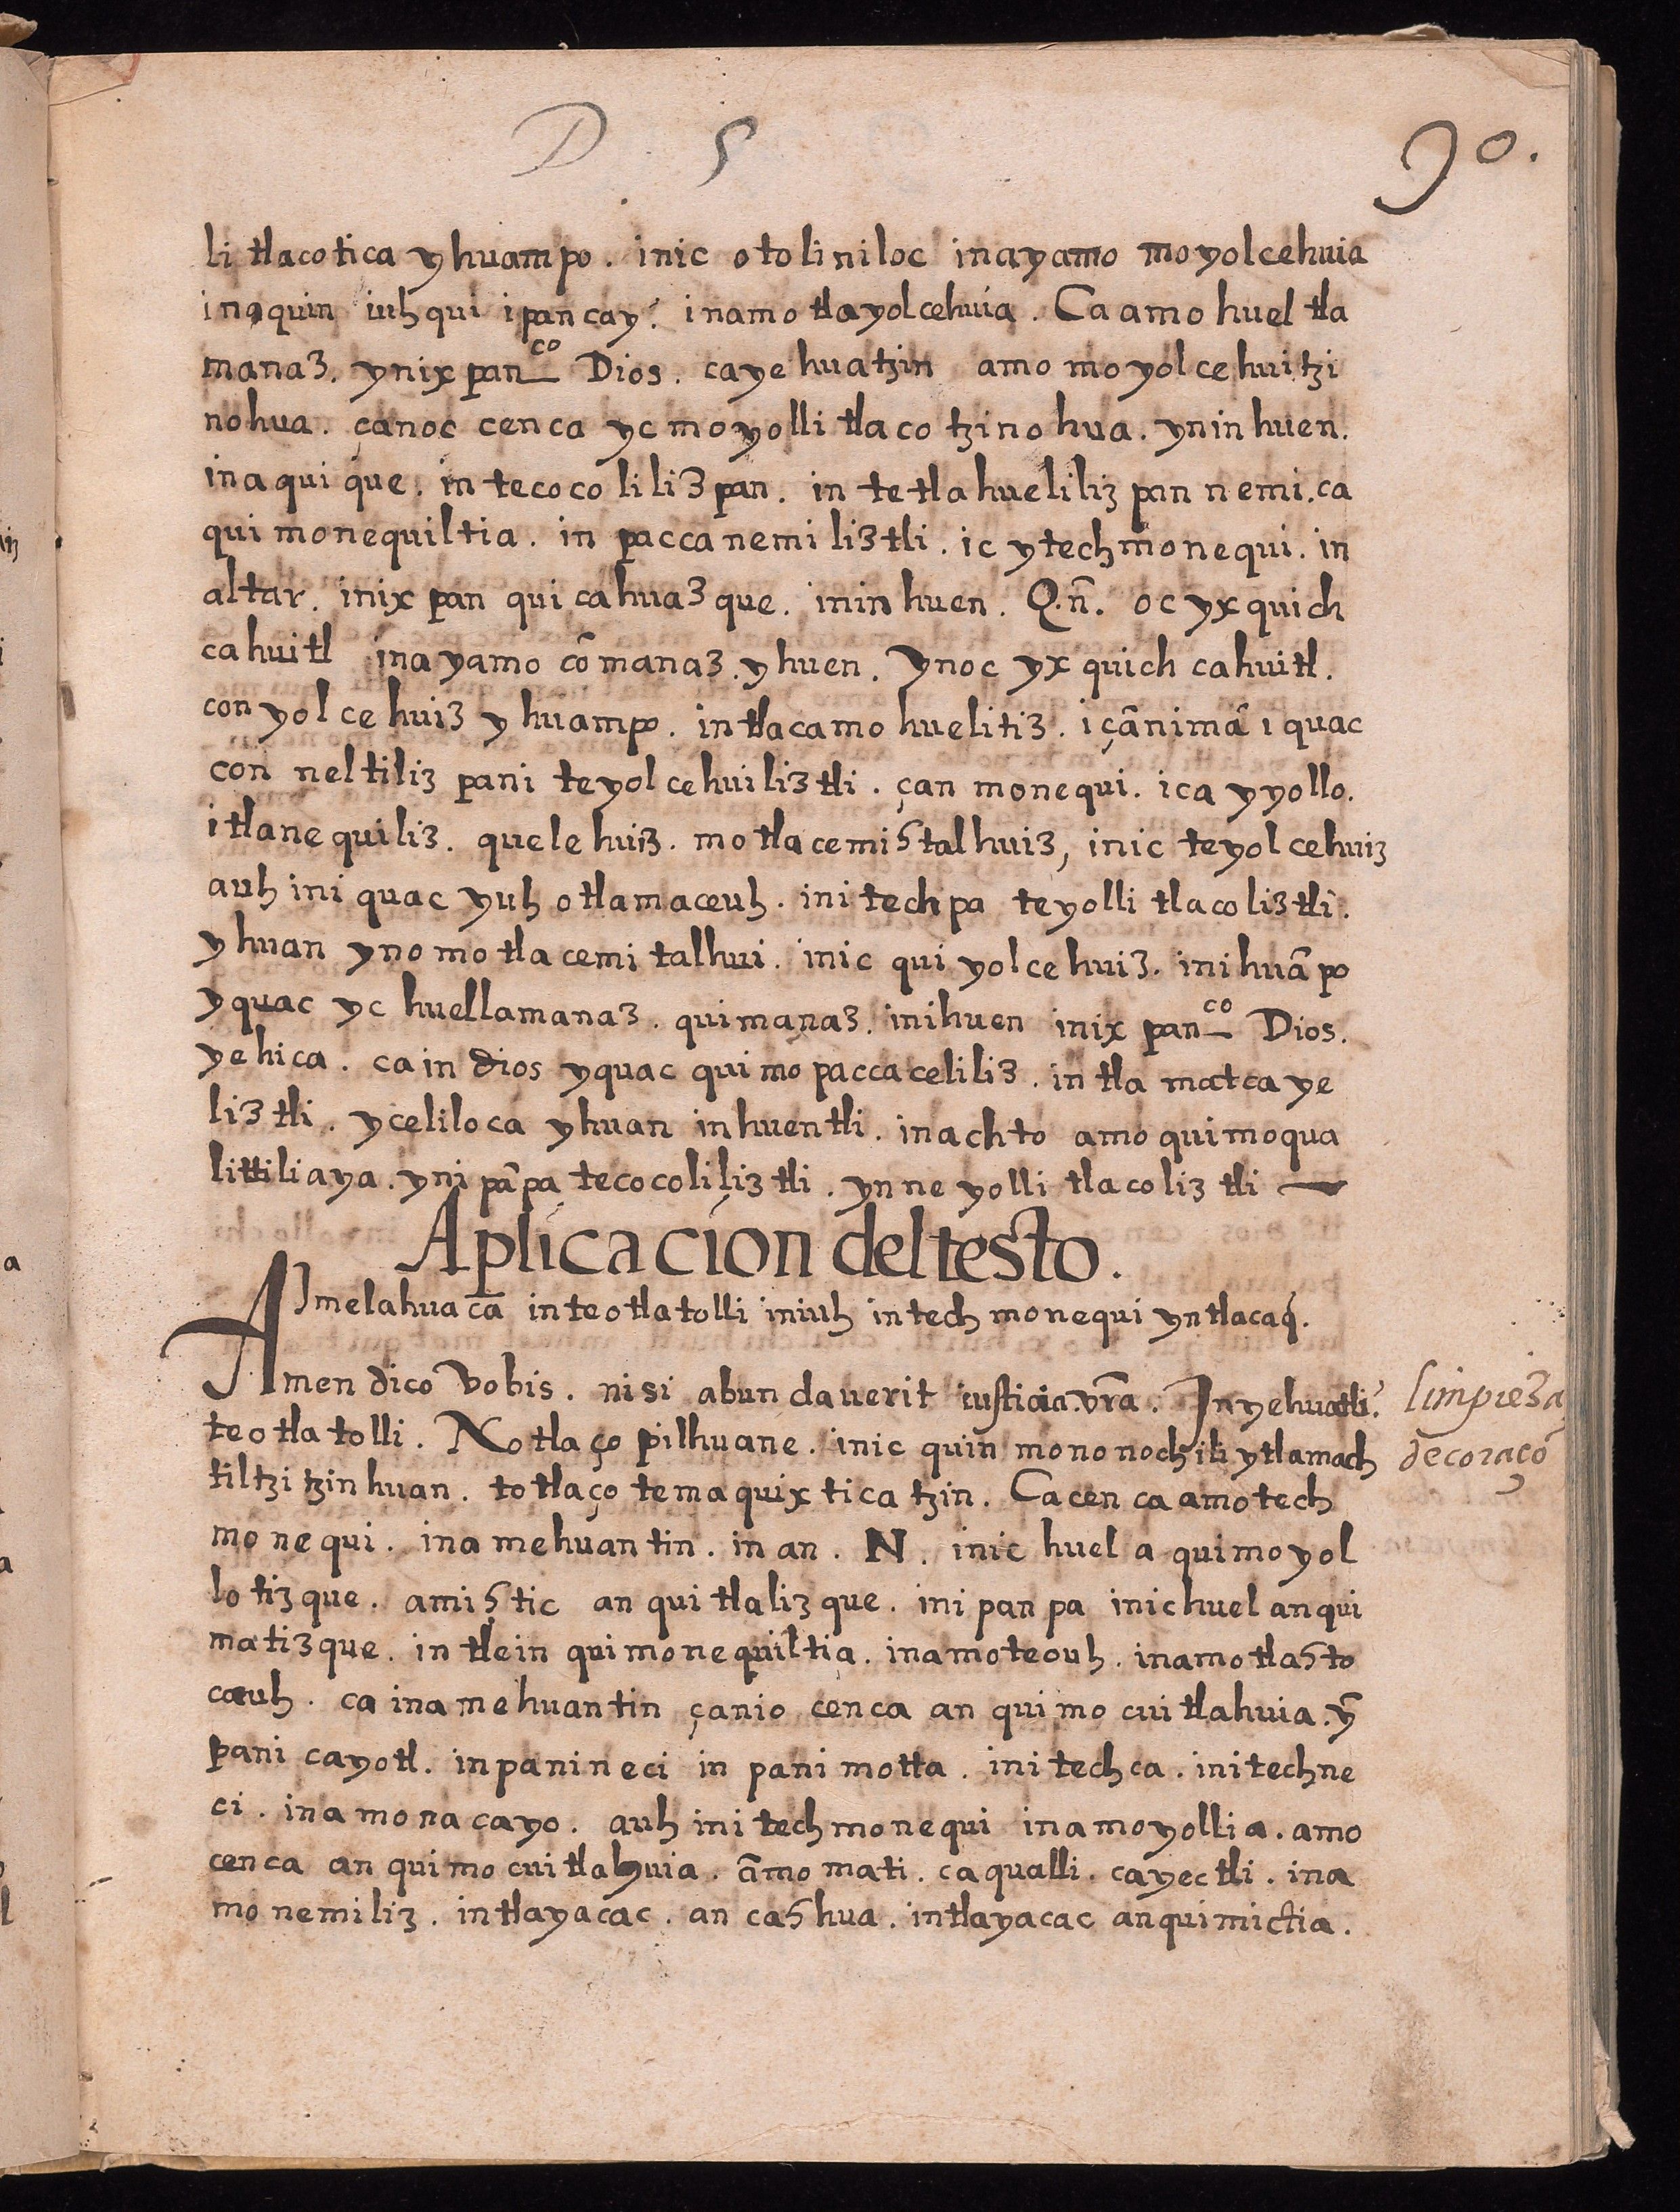 D. 5 90.
li tlacotica yhuampo. inic otoliniloc inayamo moyolcehuia
inaquin iuhqui ipan cay. inamo tlayolcehuia. Ca amo huel tla
manaz. ynixpan^co Dios. caye huatzin amo moyolcehuitzi
nohua. çanoc cenca yc moyollitlacotzinohua. yninhuen.
inaquique. in tecocolilizpan. in tetlahuelilizpan nemi. ca
quimonequiltia. in paccanemiliztli. ic ytech monequi. in
altar. inixpan quicahuazque. ininhuen. Q.n̄. oc yxquich
cahuitl inayamo cōmanaz. yhuen. ynoc yxquich cahuitl.
conyolcehuiz yhuampo. intlacamo huelitiz. içānimā iquac
conneltiliz pani teyolcehuiliztli. çan monequi. ica yyollo.
itlanequiliz. quelehuiz. motlacemistalhuiz, inic teyolcehuiz
auh iniquac yuh otlamaceuh. initechpa teyollitlacoliztli.
yhuan yno motlacemitalhui. inic quiyolcehuiz. inihuāpo
yquac yc huellamanaz. quimanaz. inihuen inixpan^co Dios.
yehica. ca in dios yquac quimopaccaceliliz. in tlamatcaye
liztli. yceliloca yhuan inhuentli. inachto amo quimoqua
littiliaya. ynipāpa tecocoliliztli. yn neyollitlacoliztli —
Aplicacion del testo.
Imelahuaca in teotlatolli iniuh intech monequi yntlacaq̄.
Amen dico vobis. nisi abundaverit iusticia vr̄a. Inyehuatli
limpieza
teotlatolli. Notlaçopilhuane. inic quinmononochili ytlamach
de coraçō
tiltzitzinhuan. totlaçotemaquixticatzin. Ca cenca amotech
monequi. inamehuantin. in an. N. inic huel aquimoyol
lotizque. amistic anquitlalizque. inipanpa inic huel anqui
matizque. in tlein quimonequiltia. inamoteouh. inamotlasto
cauh. ca inamehuantin çanio cenca anquimocuitlahuia. ȳ
panicayotl. inpanineci in panimotta. initechca. initechne
ci. inamonacayo. auh initech monequi inamoyollia. amo
cenca anquimocuitlahuia. āmomati. ca qualli. ca yectli. ina
monemiliz. intlayacac. ancashua. intlayacac anquimictia.